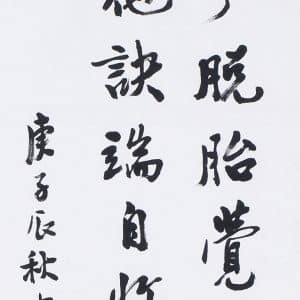 脱胎覺
訣端自
庚子辰秋